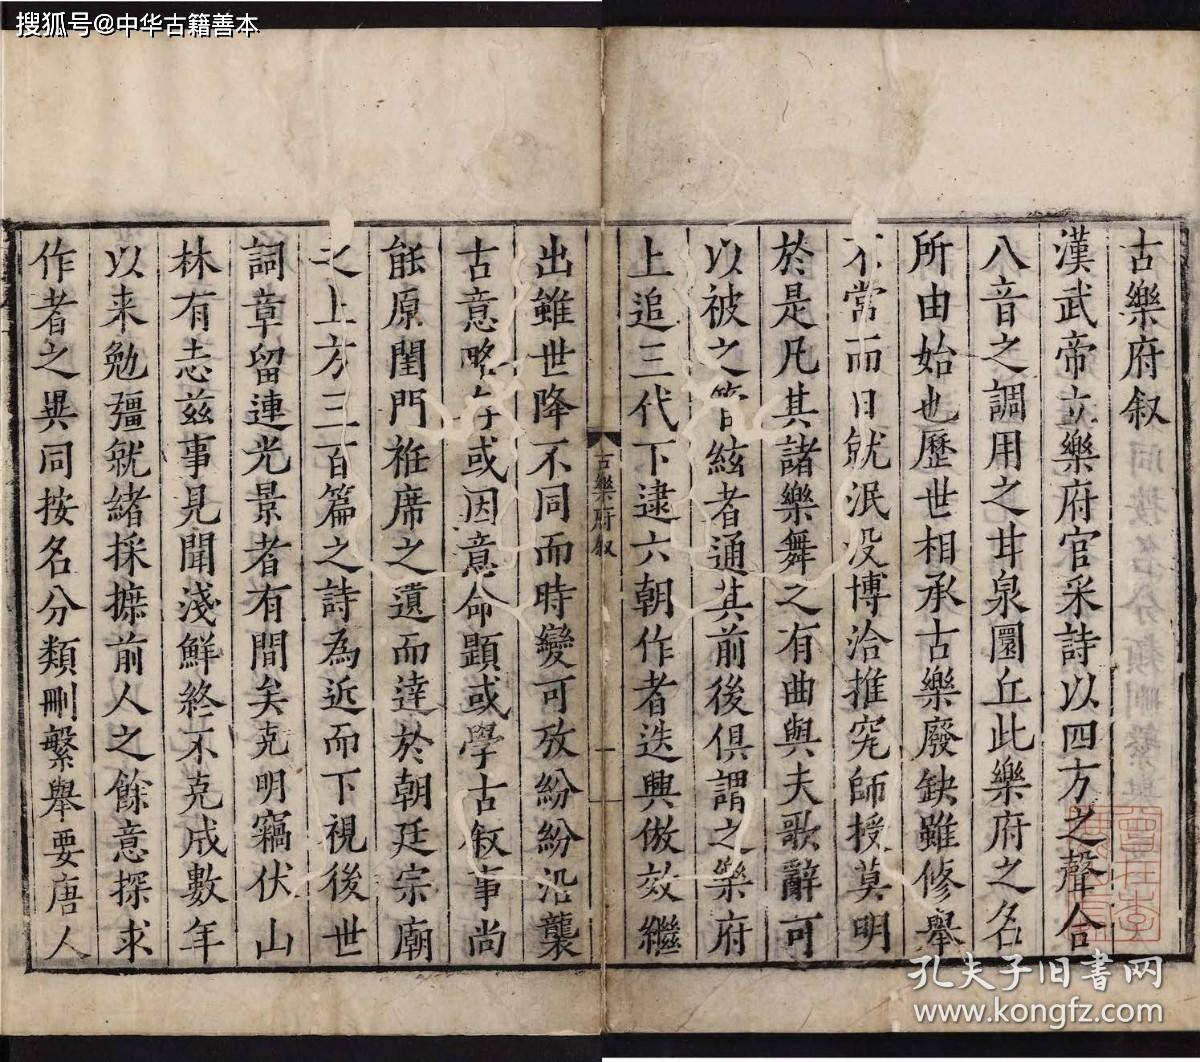 搜狐号@中华古籍善本
古樂府叙
漢武帝立樂府官采詩以四方之聲合
八音之調用之甘泉圜丘此樂府之名
所由始也歷世相承古樂廢缺雖修舉
不常而日就泯没博洽推究師授莫明
於是凡其諸樂舞之有曲與夫歌辭可
以被之管絃者通其前後俱謂之樂府
上追三代下逮六朝作者迭興倣效繼
古樂府叙
一
出雖世降不同而時變可攷紛紛沿襲
古意略存或因意命題或學古叙事尚
能原閨門袵席之遺而達於朝廷宗廟
之上方三百篇之詩為近而下視後世
詞章留連光景者有間矣克明竊伏山
林有志兹事見聞淺鮮終不克成數年
以来勉彊就緒採摭前人之餘意探求
作者之異同按名分類刪繁舉要唐人
孔夫子旧书网
www.kongfz.com